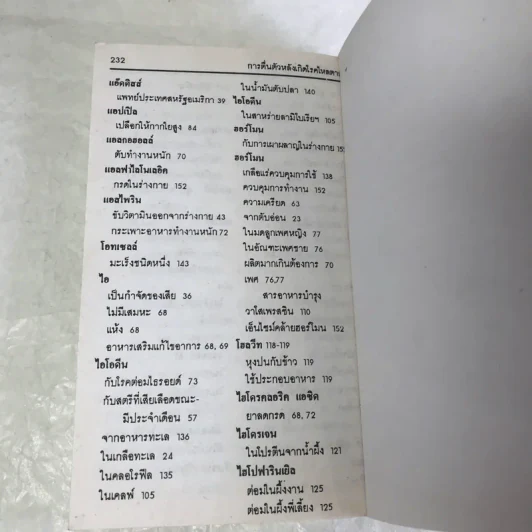 232
การตื่นตัวหลังเกิดโรคไหลตาย
แอ๊ดดิสส์
แพทย์ประเทศสหรัฐอเมริกา 39
แอปเปิล
เปลือกให้กากใยสูง 84
แอลกอฮอลล์
ตับทำงานหนัก 70
แอลฟาไลโนเลอิค
กรดในร่างกาย 152
แอสไพริน
ขับวิตามินออกจากร่างกาย 43
กระเพาะอาหารทำงานหนัก 72
โอทเซลล์
มะเร็งชนิดหนึ่ง 143
ไอ
เป็นกำจัดของเสีย 36
ไม่มีเสมหะ 68
แห้ง 68
อาหารเสริมแก้ไขอาการ 68, 69
ไอโอดีน
กับโรคต่อมไธรอยด์ 73
กับสตรีที่เสียเลือดขณะ-
มีประจำเดือน 57
จากอาหารทะเล 136
ในเกลือทะเล 24
ในคลอโรฟีล 135
ในเคลพ์ 105
ในน้ำมันตับปลา 140
ไอโอดีน
ในสาหร่ายลามิไบเรียฯ 105
ฮอร์โมน
กับการเผาผลาญในร่างกาย
ฮอร์โมน
เกลือแร่ควบคุมการใช้ 138
ควบคุมการทำงาน 152
ความเครียด 63
จากตับอ่อน 23
ในมดลูกเพศหญิง 77
ในอัณฑะเพศชาย 76
ผลิตมากเกินต้องการ 70
เพศ 76,77
สารอาหารบำรุง
วาโสเพรสซิน 110
เอ็นไซม์คล้ายฮอร์โมน 152
โฮลวีท 118-119
หุงปนกับข้าว 119
ใช้ประกอบอาหาร 119
ไฮโดรคลอริค แอซิด
ยาลดกรด 68, 72
ไฮโดรเจน
ในโปรตีนจากน้ำผึ้ง 121
ไฮโปฟารินเยิล
ต่อมในผึ้งงาน 125
ต่อมในผึ้งพี่เลี้ยง 125